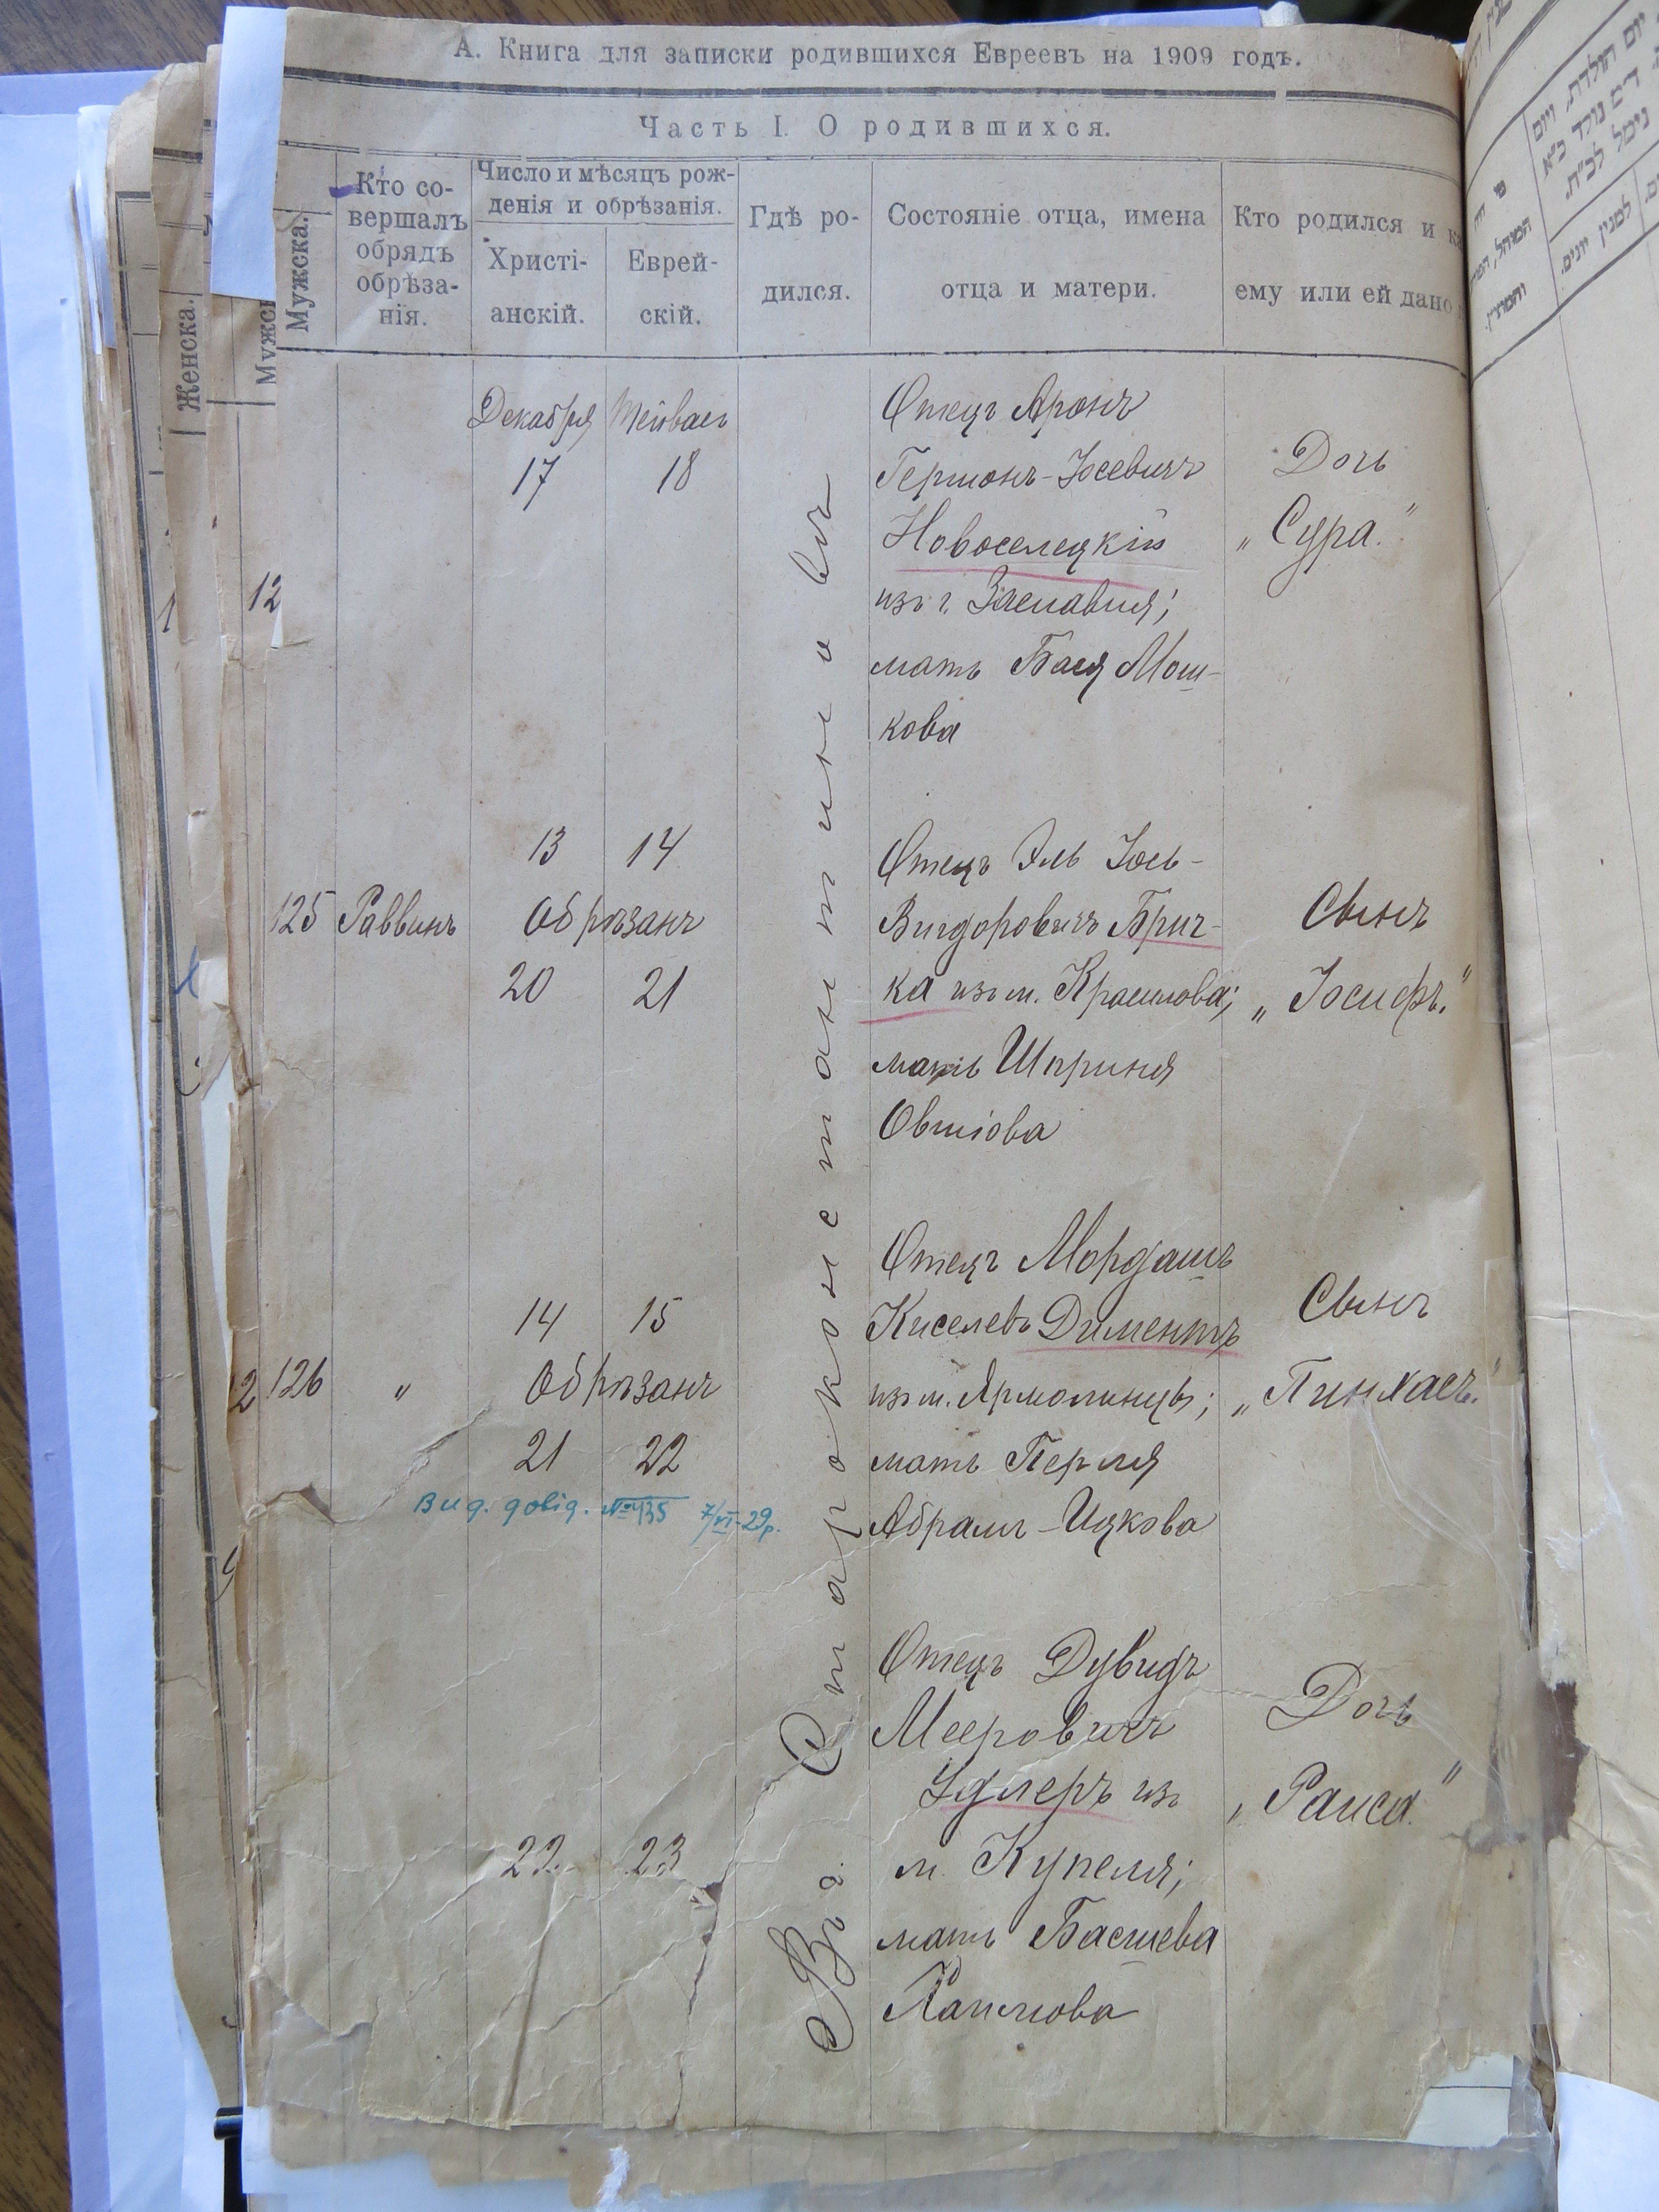 А. Книга для записки родившихся Евреевъ на 1909 годъ.
Часть I. О родившихся.
Женска.
Мужск
Мужска.
Кто со-
вершалъ
обрядъ
обрѣза-
нія.
Число и мѣсяцъ рож-
денія и обрѣзанія.
Христі-
анскій.
Еврей-
скій.
Гдѣ ро-
дился.
Состояніе отца, имена
отца и матери.
Кто родился и ка
ему или ей дано
Декабря Тейваег
17 18
Отецъ Аронъ
Гершонъ-Іосевичъ
Новоселецкій
изъ г. Заславля;
мать Бася Мош-
кова
Дочь
„Сура."
12
13 14
125 Раввинъ Обрѣзанъ
20 21
Отецъ Эль Іось-
Вигдоровичъ Брич-
ка изъ м. Красилова;
мать Шприня
Овшіова
Сынъ
„Іосифъ."
14 15
2 126 „ Обрѣзанъ
21 22
Вид. довід. № 435 7/VI-29р.
Отецъ Мордашъ
Киселевъ Диментъ
изъ м. Ярмолинцы;
мать Перля
Абрамъ-Ицкова
Сынъ
„Пинхасъ."
22. 23
Отецъ Дувидъ
Мееровичъ
Удлеръ изъ
м. Купеля;
мать Басшева
Хаимова
Дочь
„Раиса."
Въ г. Староконстантиновъ